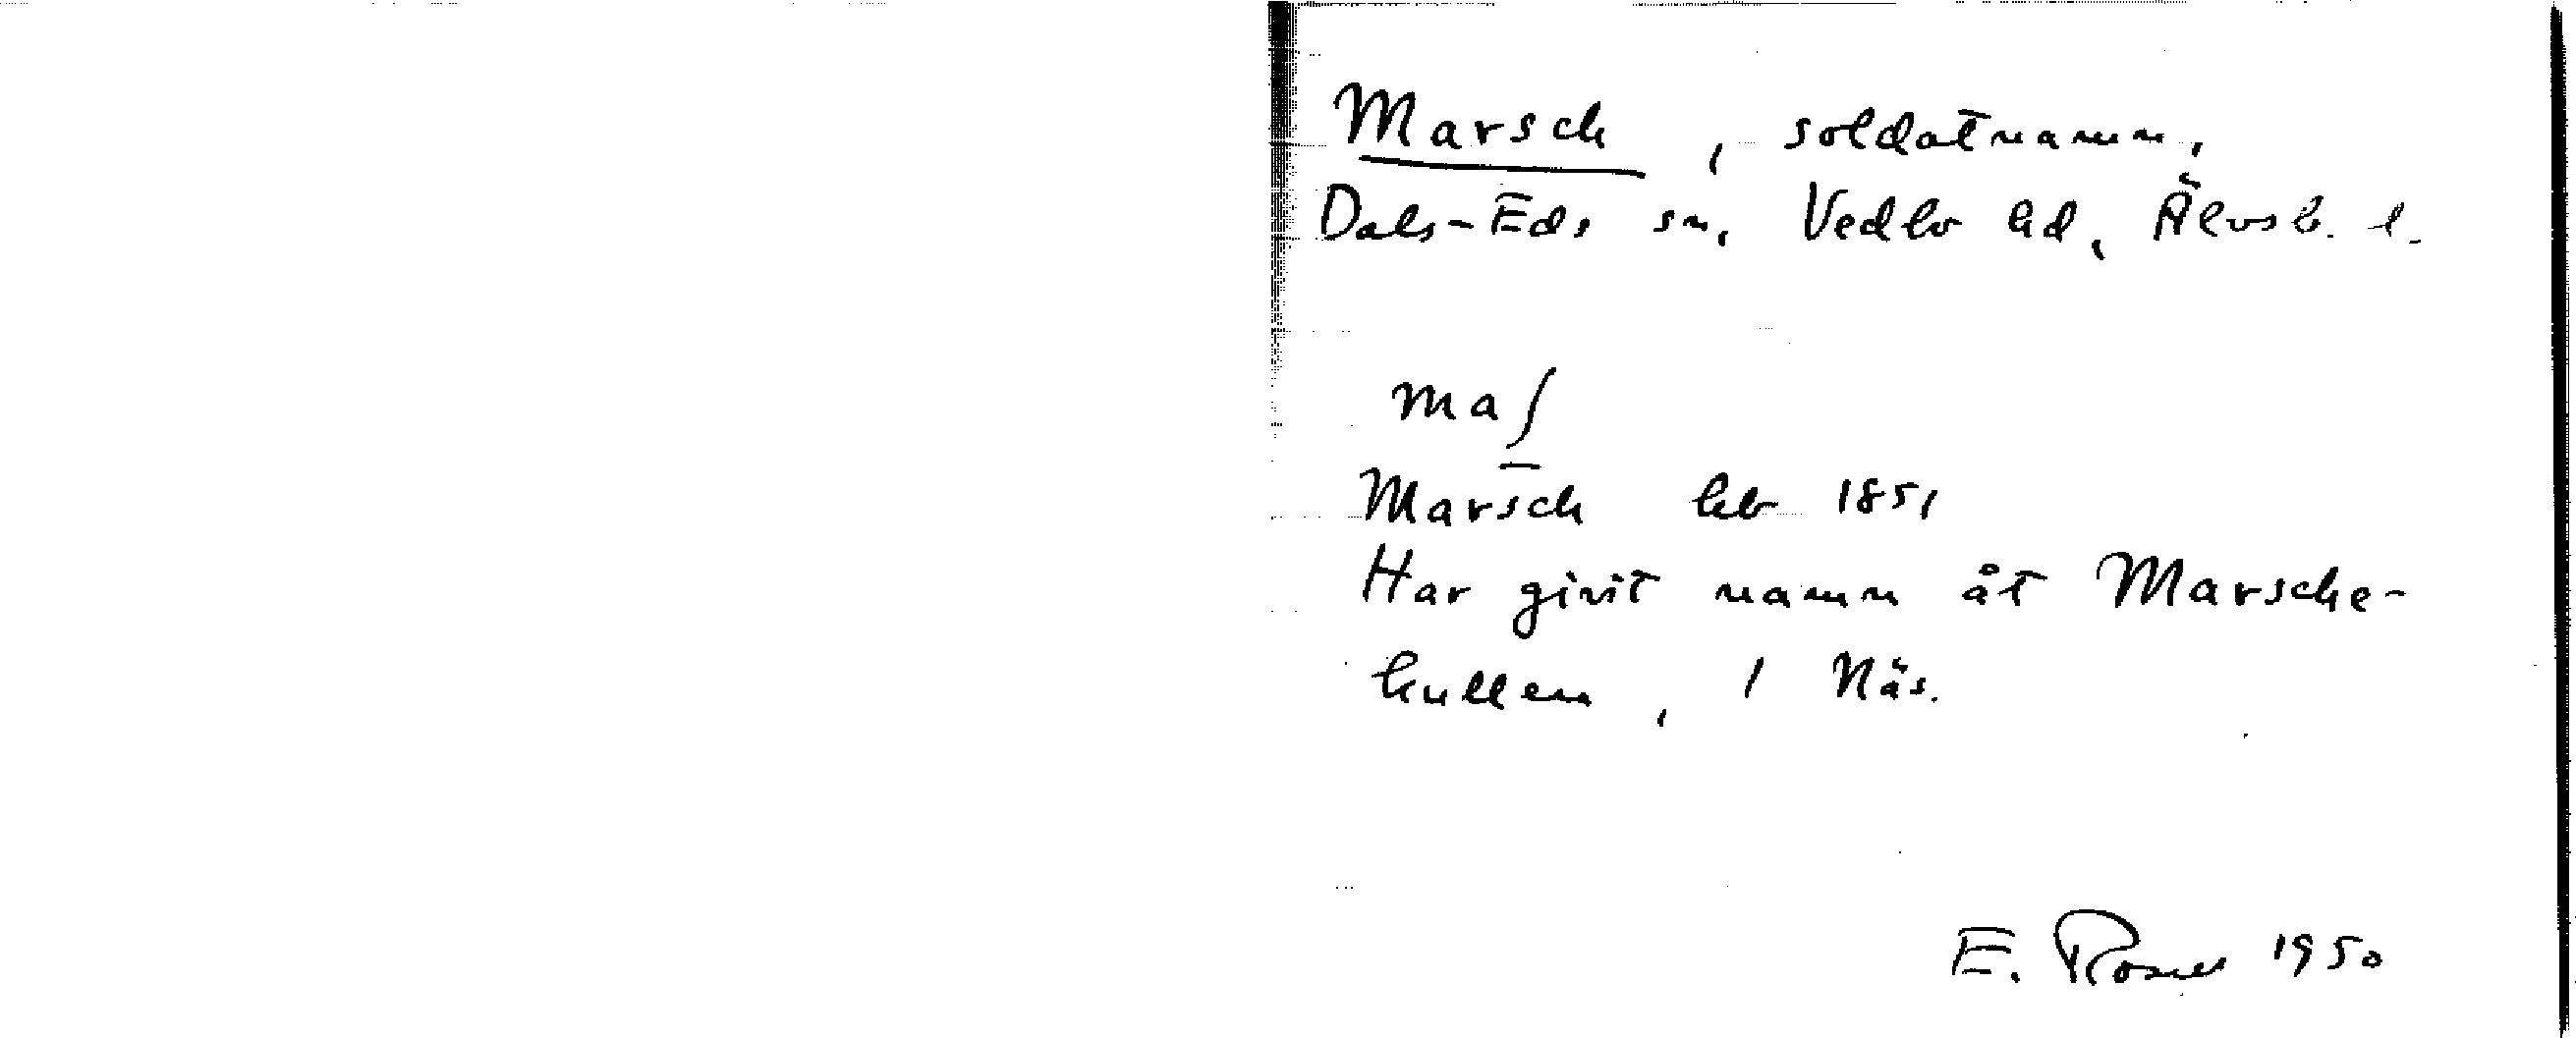 Marsch, soldatnamn,
Dals-Eds sn, Vedbo hd, Älvsb. l.
maʃ
Marsch hb 1851
Har givit namn åt Marsche-
kullen, 1 Näs.
E. Rosell 1950